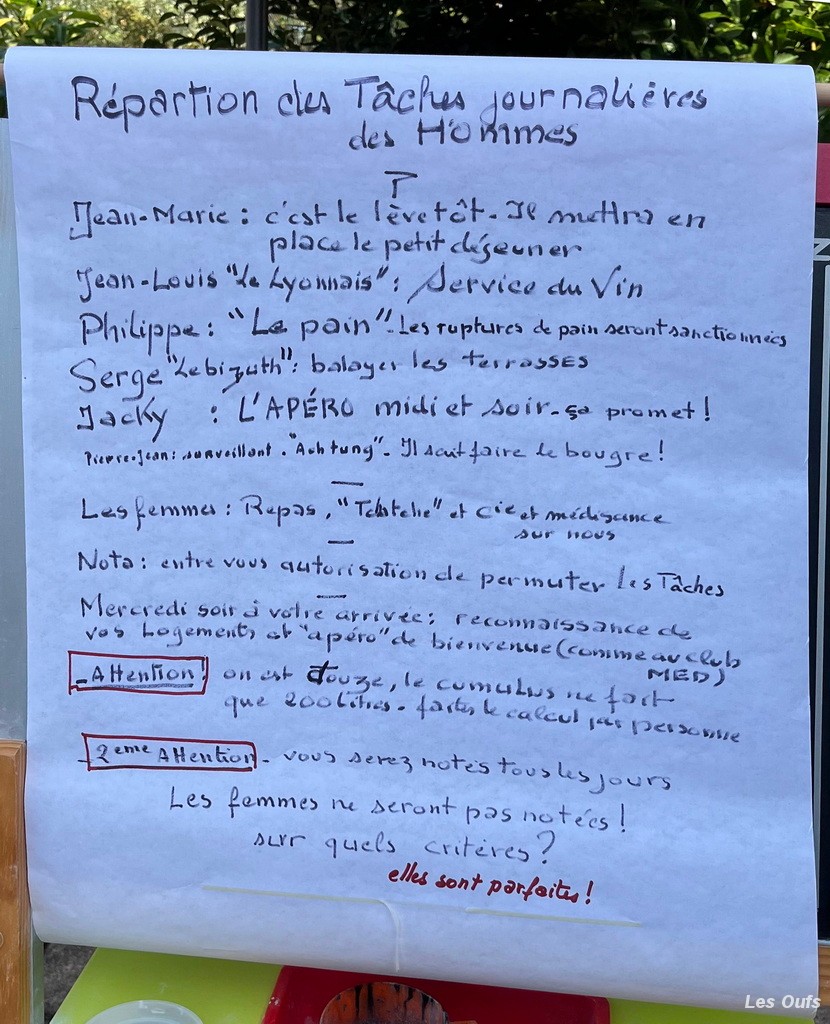 Répartion des Tâches journalières
des Hommes
Jean-Marie : c'est le lève tôt - Il mettra en
place le petit déjeuner
Jean-Louis "Le Lyonnais" : Service du Vin
Philippe : "Le pain" - Les ruptures de pain seront sanctionnées
Serge "Le bizuth" : balayer les terrasses
Jacky : L'APÉRO midi et soir - ça promet !
Pierre-Jean : surveillant . "Achtung" - Il sait faire le bougre !
Les femmes : Repas, et Cie et médisance
sur nous
Nota : entre vous autorisation de permuter les Tâches
Mercredi soir à votre arrivée : reconnaissance de
vos Logements et "apéro" de bienvenue (comme au club
MED)
- Attention ! on est douze, le cumulus ne fait
que 200 Litres - faites le calcul par personne
- 2ème Attention - vous serez notés tous les jours
Les femmes ne seront pas notées !
sur quels critères ?
elles sont parfaites !
Les Oufs